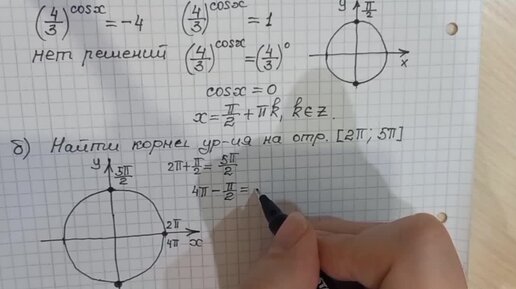 (4/3)^cosx = -4    (4/3)^cosx = 1
нет решений    (4/3)^cosx = (4/3)^0
cosx = 0
x = π/2 + πk, k∈z.
y π/2
x
б) Найти корнеи ур-ия на отр. [2π; 5π]
y 5π/2
2π + π/2 = 5π/2
4π - π/2 =
2π
4π
x